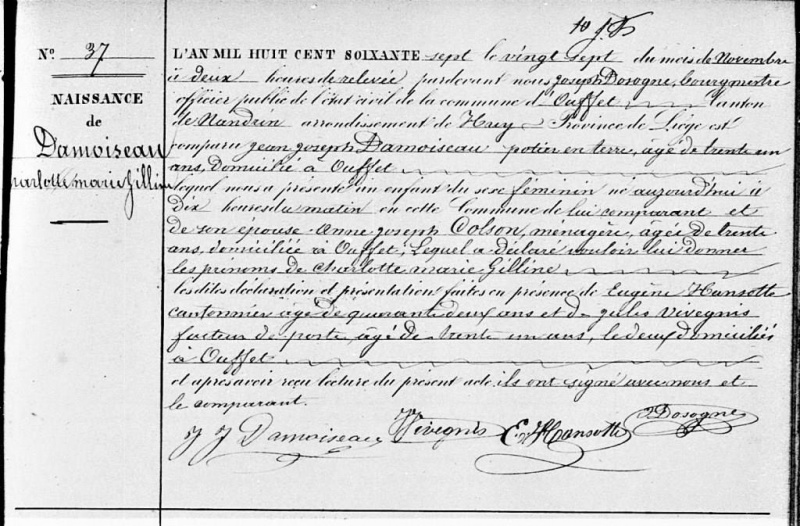 Nº 37
NAISSANCE
de
Damoiseau
charlotte marie Gilline
L'AN MIL HUIT CENT SOIXANTE sept le vingt sept du mois de Novembre
à deux heures de relevée pardevant nous joseph Dosogne, bourgmestre
officier public de l'état civil de la commune d'Ouffet canton
de Nandrin arrondissement de Huy Province de Liége est
comparu jean joseph Damoiseau potier en terre, agé de trente un
ans, domicilié à Ouffet
lequel nous a présenté un enfant du sexe féminin né aujourd'hui à
dix heures du matin en cette Commune de lui comparant et
de son épouse Anne joseph Colson, ménagère, agée de trente
ans, domiciliée à Ouffet, Lequel a déclaré vouloir lui donner
les prénoms de charlotte marie Gilline
les dites déclaration et présentation faites en présence de Eugène Hansotte
cantonnier agé de quarante deux ans et de jules Vivegnis
facteur de poste, agé de trente un ans, le deux domiciliés
à Ouffet
et après avoir reçu lecture du présent acte, ils ont signé avec nous et
le comparant.
J J Damoiseau Vivegnis E. Hansotte Dosogne